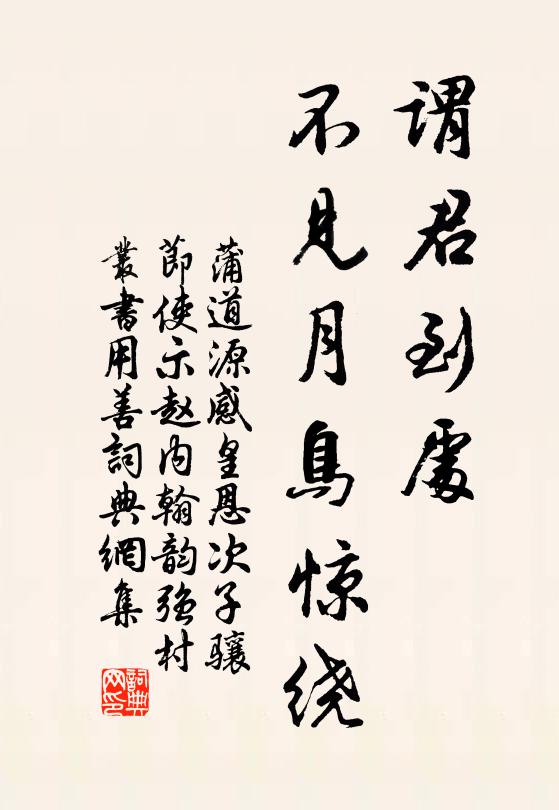 謂君到處
不見月鳥惊绕
蒲道源感皇恩次子骧
節使示赵内翰韵强村
叢書用善詞典網集
詞典
网印